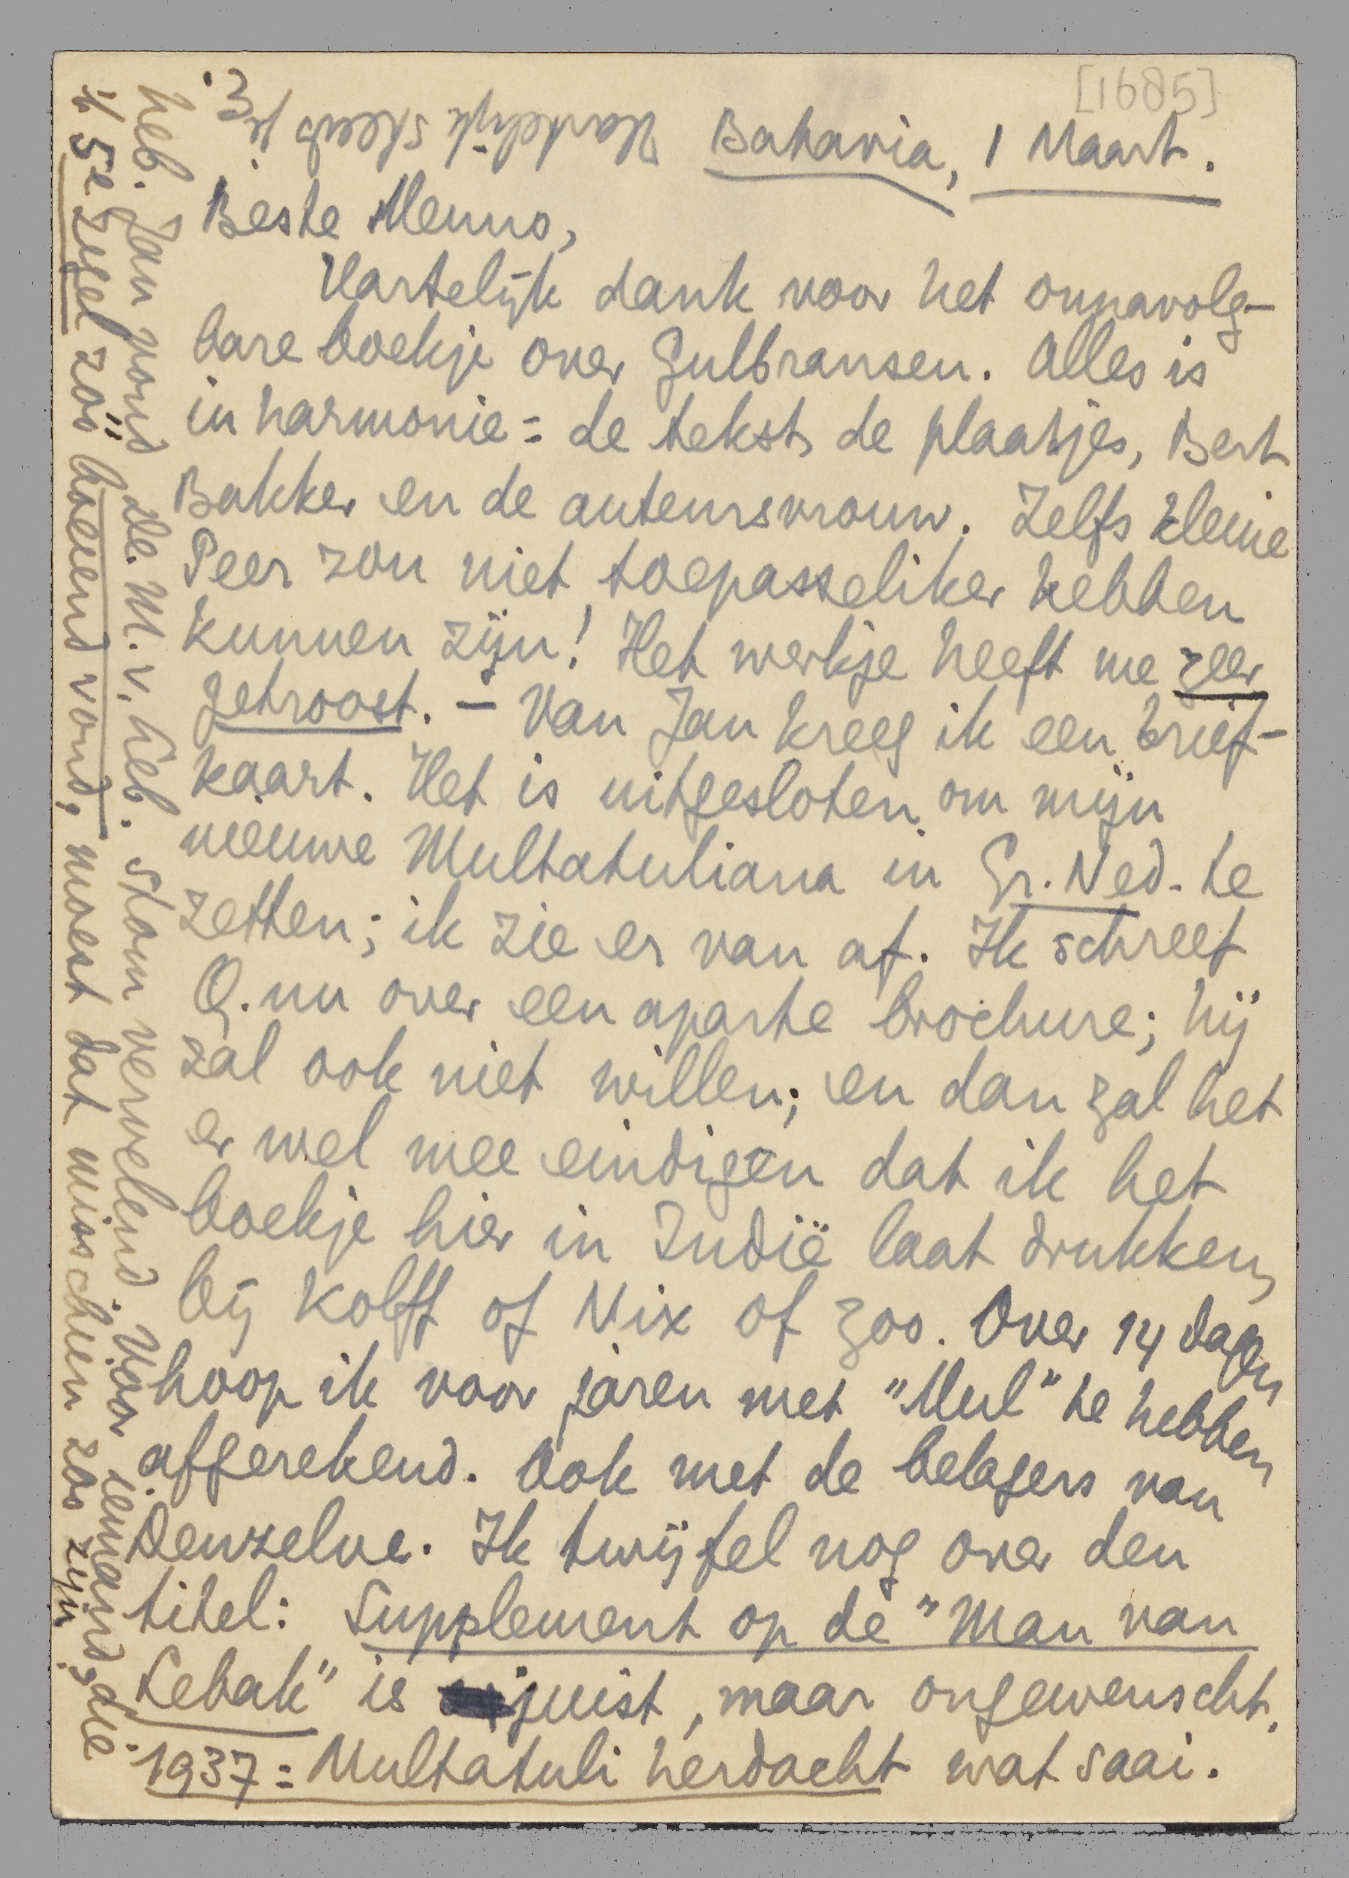 [1685]
Batavia, 1 Maart.
Beste Menno,
Hartelijk dank voor het onnavolg-
bare boekje over Gulbransen. Alles is
in harmonie: de tekst, de plaatjes, Bert
Bakker en de auteursvrouw. Zelfs kleine
Peer zou niet toepasseliker hebben
kunnen zijn! Het werkje heeft me zeer
getroost. – Van Jan kreeg ik een brief-
kaart. Het is uitgesloten om mijn
nieuwe Multatuliana in Gr. Ned. te
zetten; ik zie er van af. Ik schreef
Q. nu over een aparte brochure; hij
zal ook niet willen; en dan zal het
er wel mee eindigen dat ik het
boekje hier in Indië laat drukken,
bij Kolff of Nix of zoo. Over 14 dagen
hoop ik voor jaren met "Mul" te hebben
afgerekend. Ook met de belagers van
Denzelve. Ik twijfel nog over den
titel: Supplement op de "Man van
Lebak" is juist, maar ongewenscht,
1937: Multatuli herdacht wat saai.
heb. Jan vond de M. v. Leb. stom vervelend. Voor iemand die
't 5e zegel zóó boeiend vond, moest dat misschien zoo zijn.
Hartelijk steeds je E.